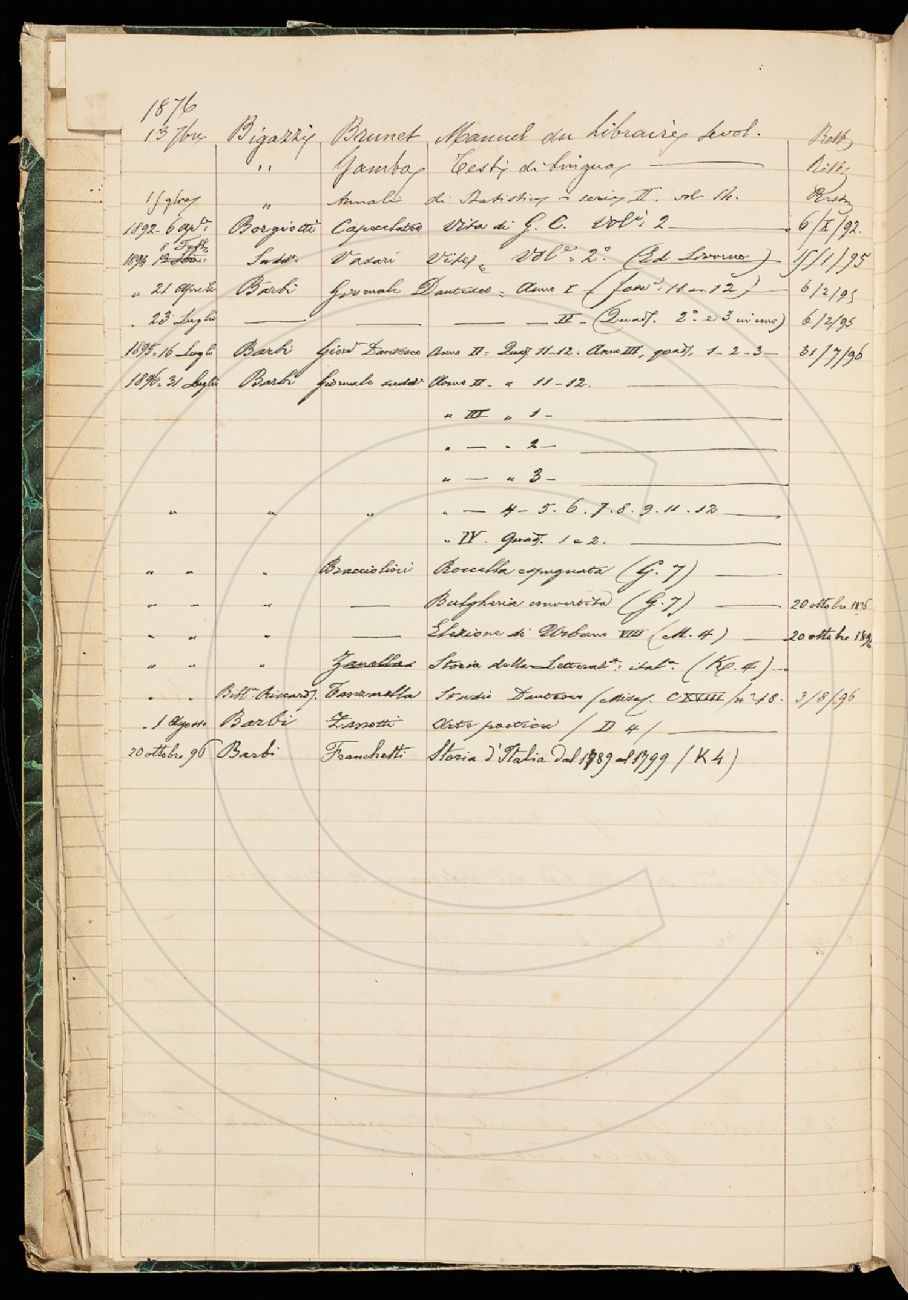 1876
13 7bre Bigazzi Brunet Manuel du libraire vol.
" Gamba Testi di lingua
" Annali di Statistica serie II. vol. 14.
1892 6 Borgiotti Capecelatro Vita di G. C. Vol. 2 6/X/92.
Sudd. Vasari Vite Vol. 2º (Ed Livorno) 15/1/95
" 21 Aprile Barbi Giornale Dantesco Anno I (fasc. 11 - 12) 6/2/95
" 23 Luglio II - (Quad. 2º e 3 6/2/95
1895-16 Lugli Barbi Giorn Dantesco Anno II - Quad. 11-12. Anno III, quad. 1-2-3- 31/7/96
1896. 31 Luglio Barbi Giornale sudd Anno II - " 11-12.
" III " 1-
" — " 2-
" — " 3-
" " " " — 4-5.6.7.8.9.11.12
" IV. Quad. 1 e 2.
" " " Bracciolini Roccella espugnata (G. 7)
" " " — Bulgheria convertita (G. 7) 20 ottobre 1896
" " " — Elezione di Urbano VIII (M. 4) 20 ottobre 1896
" " " Zanella Storia della Letterat. ital. (K. 4)
" " Bibl. Riccard. Studio Dantesco (Misc. CXVIII/nº 18. 3/8/96
1 Agosto Barbi Zanotti Arte poetica / D 4 /
20 ottobre 96 Barbi Franchetti Storia d'Italia dal 1789 al 1799 (K 4)